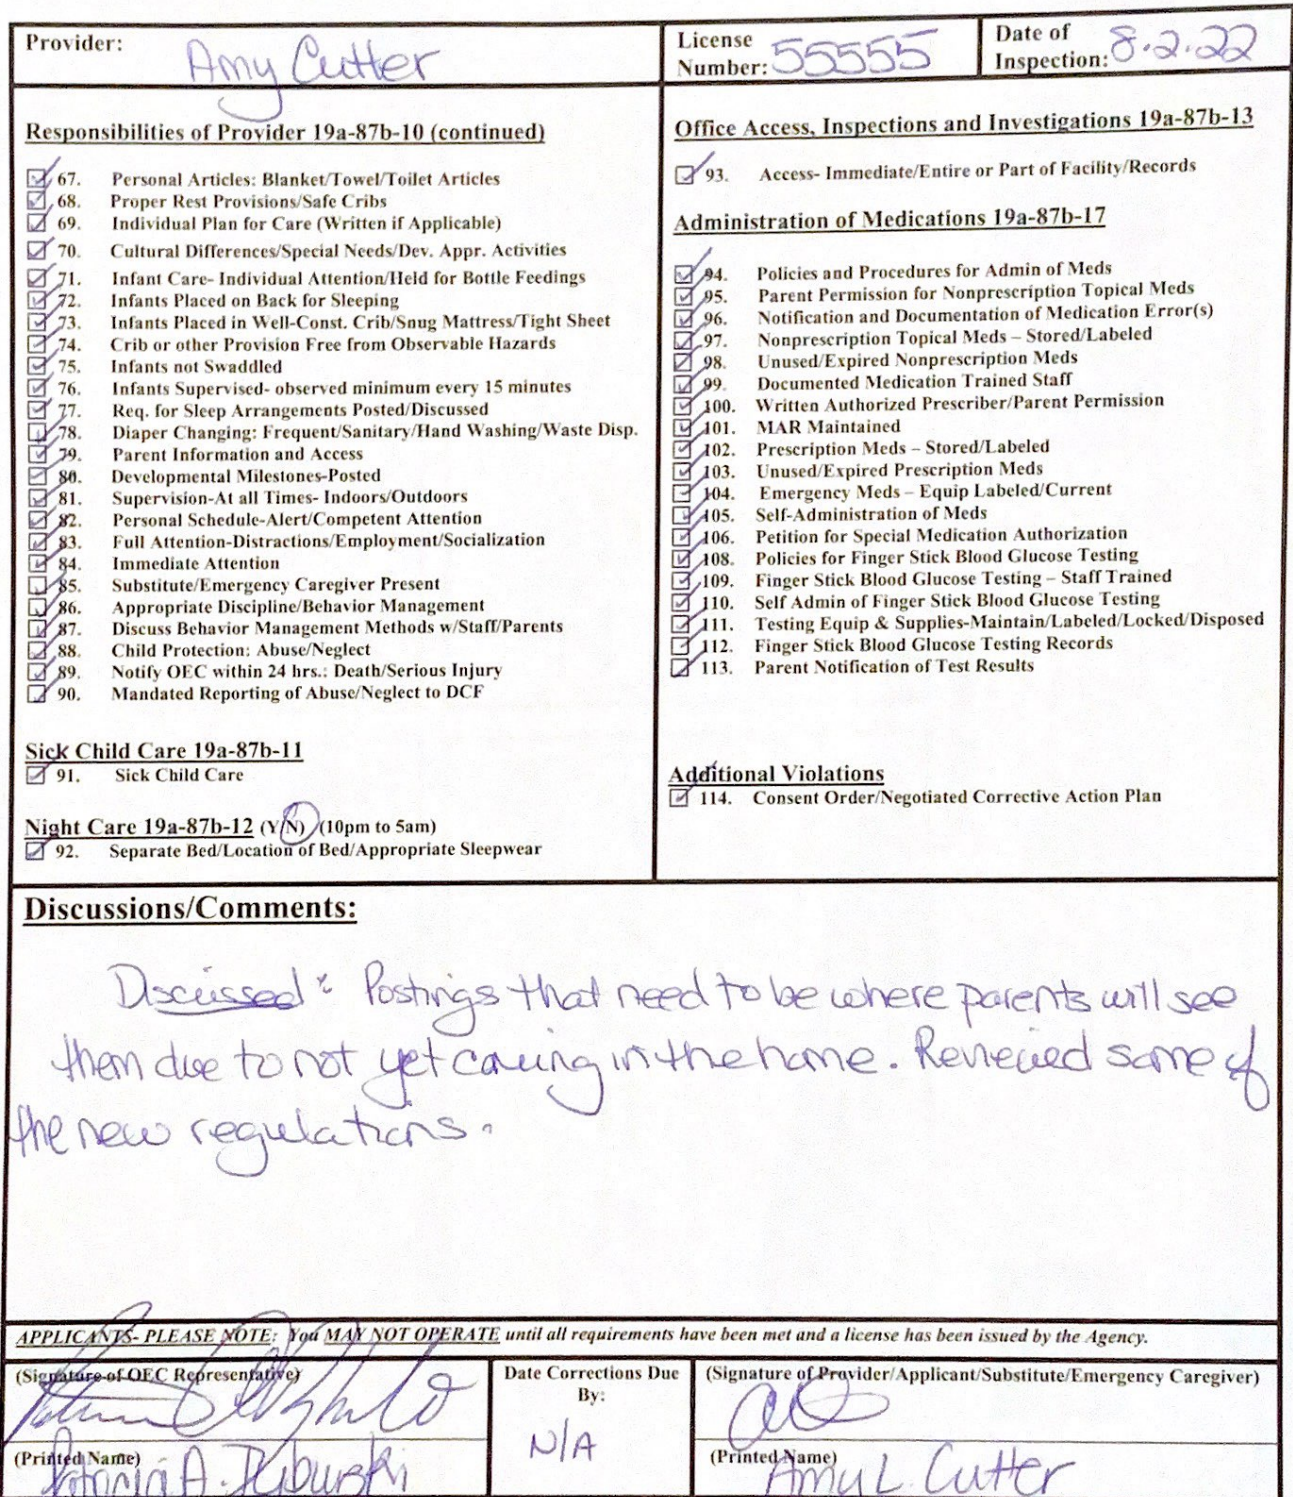 Provider: Amy Cutter
License Number: 55555
Date of Inspection: 8.2.22
Responsibilities of Provider 19a-87b-10 (continued)
67. Personal Articles: Blanket/Towel/Toilet Articles
68. Proper Rest Provisions/Safe Cribs
69. Individual Plan for Care (Written if Applicable)
70. Cultural Differences/Special Needs/Dev. Appr. Activities
71. Infant Care- Individual Attention/Held for Bottle Feedings
72. Infants Placed on Back for Sleeping
73. Infants Placed in Well-Const. Crib/Snug Mattress/Tight Sheet
74. Crib or other Provision Free from Observable Hazards
75. Infants not Swaddled
76. Infants Supervised- observed minimum every 15 minutes
77. Req. for Sleep Arrangements Posted/Discussed
78. Diaper Changing: Frequent/Sanitary/Hand Washing/Waste Disp.
79. Parent Information and Access
80. Developmental Milestones-Posted
81. Supervision-At all Times- Indoors/Outdoors
82. Personal Schedule-Alert/Competent Attention
83. Full Attention-Distractions/Employment/Socialization
84. Immediate Attention
85. Substitute/Emergency Caregiver Present
86. Appropriate Discipline/Behavior Management
87. Discuss Behavior Management Methods w/Staff/Parents
88. Child Protection: Abuse/Neglect
89. Notify OEC within 24 hrs.: Death/Serious Injury
90. Mandated Reporting of Abuse/Neglect to DCF
Sick Child Care 19a-87b-11
91. Sick Child Care
Night Care 19a-87b-12 (Y/N) (10pm to 5am)
92. Separate Bed/Location of Bed/Appropriate Sleepwear
Office Access, Inspections and Investigations 19a-87b-13
93. Access- Immediate/Entire or Part of Facility/Records
Administration of Medications 19a-87b-17
94. Policies and Procedures for Admin of Meds
95. Parent Permission for Nonprescription Topical Meds
96. Notification and Documentation of Medication Error(s)
97. Nonprescription Topical Meds – Stored/Labeled
98. Unused/Expired Nonprescription Meds
99. Documented Medication Trained Staff
100. Written Authorized Prescriber/Parent Permission
101. MAR Maintained
102. Prescription Meds – Stored/Labeled
103. Unused/Expired Prescription Meds
104. Emergency Meds – Equip Labeled/Current
105. Self-Administration of Meds
106. Petition for Special Medication Authorization
108. Policies for Finger Stick Blood Glucose Testing
109. Finger Stick Blood Glucose Testing – Staff Trained
110. Self Admin of Finger Stick Blood Glucose Testing
111. Testing Equip & Supplies-Maintain/Labeled/Locked/Disposed
112. Finger Stick Blood Glucose Testing Records
113. Parent Notification of Test Results
Additional Violations
114. Consent Order/Negotiated Corrective Action Plan
Discussions/Comments:
Discussed: Postings that need to be where parents will see
them due to not yet coming in the home. Reviewed some of
the new regulations.
APPLICANTS- PLEASE NOTE: You MAY NOT OPERATE until all requirements have been met and a license has been issued by the Agency.
(Signature of OEC Representative)
(Printed Name)
Patricia A.
Date Corrections Due
By:
N/A
(Signature of Provider/Applicant/Substitute/Emergency Caregiver)
(Printed Name)
Amy L. Cutter